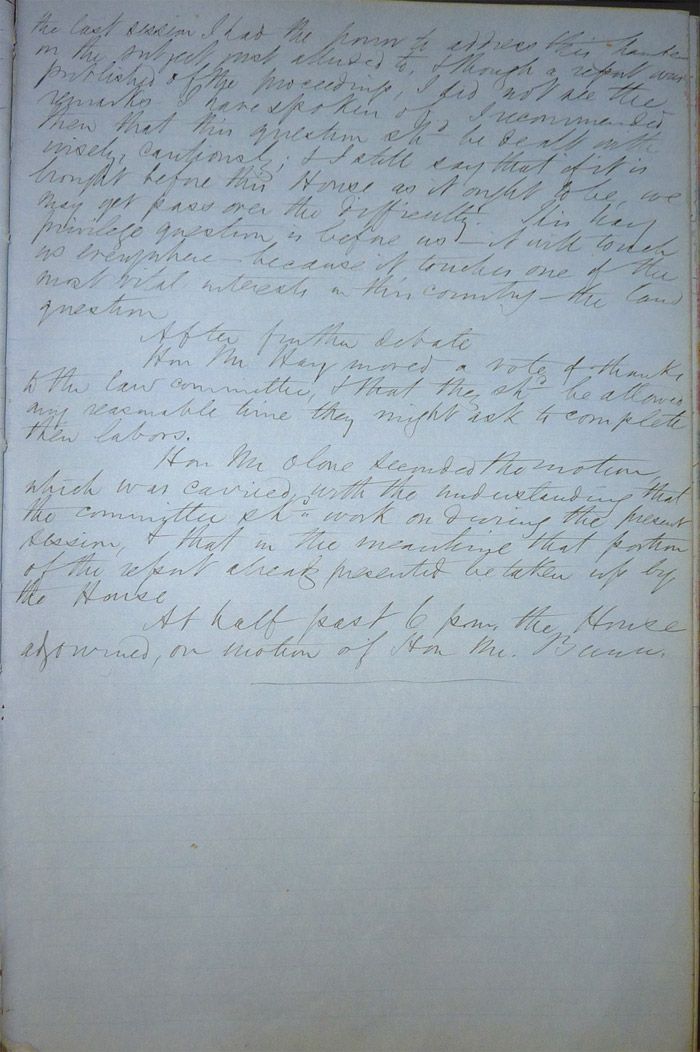 the last session I had the honor to address this
on the subject just alluded to, & though a report was
published of the proceedings, I did not see the
remarks I have spoken of. I recommended
then that this question shd be dealt with
wisely, cautiously; & I still say that if it is
brought before this House as it ought to be, we
may get pass over the difficulty. This
privilege question is before us – it will touch
us everywhere – because it touches one of the
most vital interests in this country – the land
question
After further debate
Hon Mr Hay moved a vote of thanks
to the law committee, & that they shd be allowed
any reasonable time they might ask to complete
their labors.
Hon Mr Olone seconded the motion,
which was carried, with the understanding that
the committee shd work on during the present
session, & that in the meantime that portion
of the report already presented be taken up by
the House
At half past 6 p.m. the House
adjourned, on motion of Hon Mr.